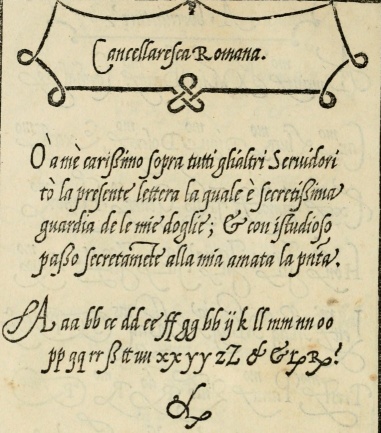 Cancellaresca Romana.
O' a mè carißimo sopra tutti glialtri Seruidori
tò la presente lettera la quale è secretißima
guardia de le mie doglie; & con istudioso
paßo secretamēte alla mia amata la pñta.
A aa bb cc dd ee ff gg hh ij k ll mm nn oo
pp qq rr ß tt uu xx yy zZ & &